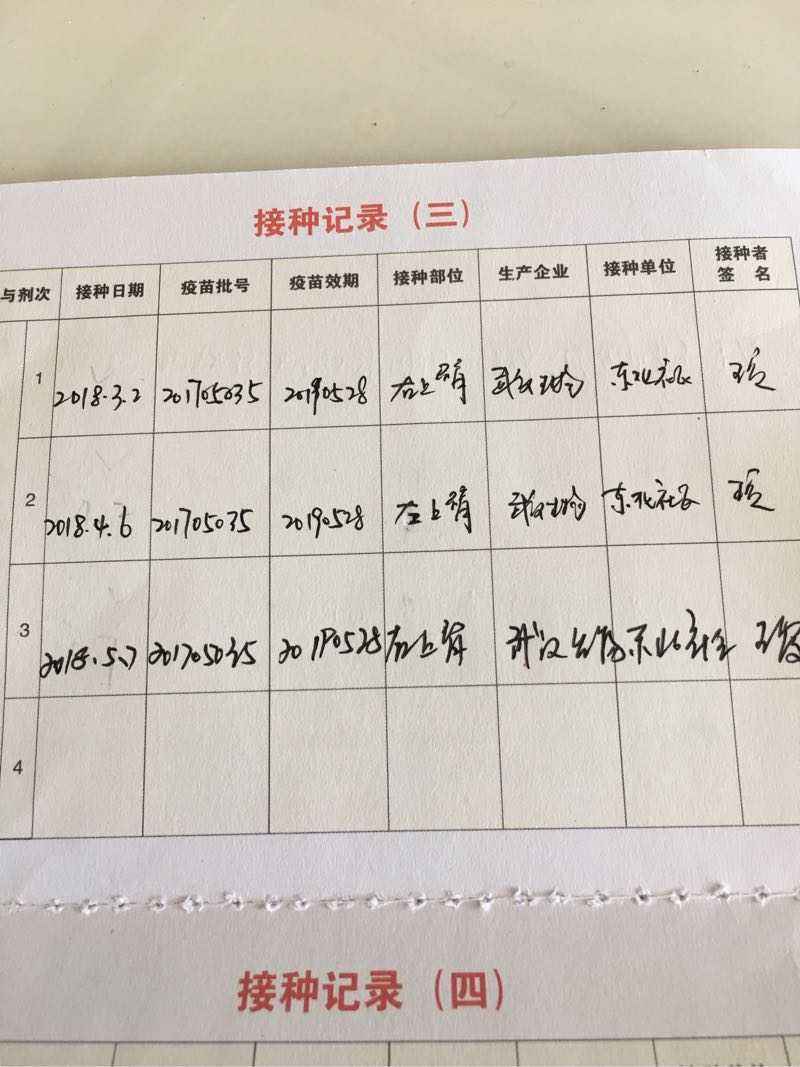 接种记录（三）
与剂次 接种日期 疫苗批号 疫苗效期 接种部位 生产企业 接种单位 接种者签名
1 2018.3.2 201705035 20190528 右上臂
2 2018.4.6 201705035 20190528 左上臂 东北社区
3 2018.5.7 201705035 20190528 右上臂 武汉生物
4
接种记录（四）